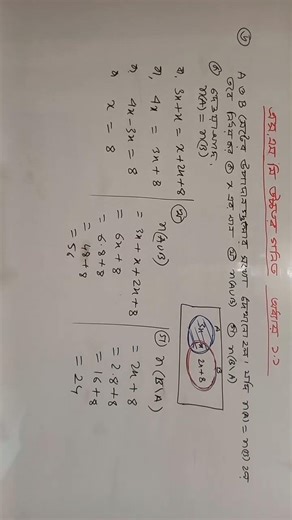 এস.এস.সি উচ্চতর গণিত অধ্যায় ১.১
A ও B সেটের উপাদানগুলোর সংখ্যা ভেনচিত্রে দেখানো হল, যদি n(A) = n(B) হয়
তবে নির্ণয় কর x এর মান n(A∪B) n(B\A)
A
B
3x
x
2x+8
দেওয়া আছে,
n(A) = n(B)
বা, 3x+x = x+2x+8
বা, 4x = 3x+8
বা, 4x-3x = 8
x = 8
n(A∪B)
= 3x+x+2x+8
= 6x+8
= 6.8+8
= 48+8
= 56
n(B\A)
= 2x+8
= 2.8+8
= 16+8
= 24